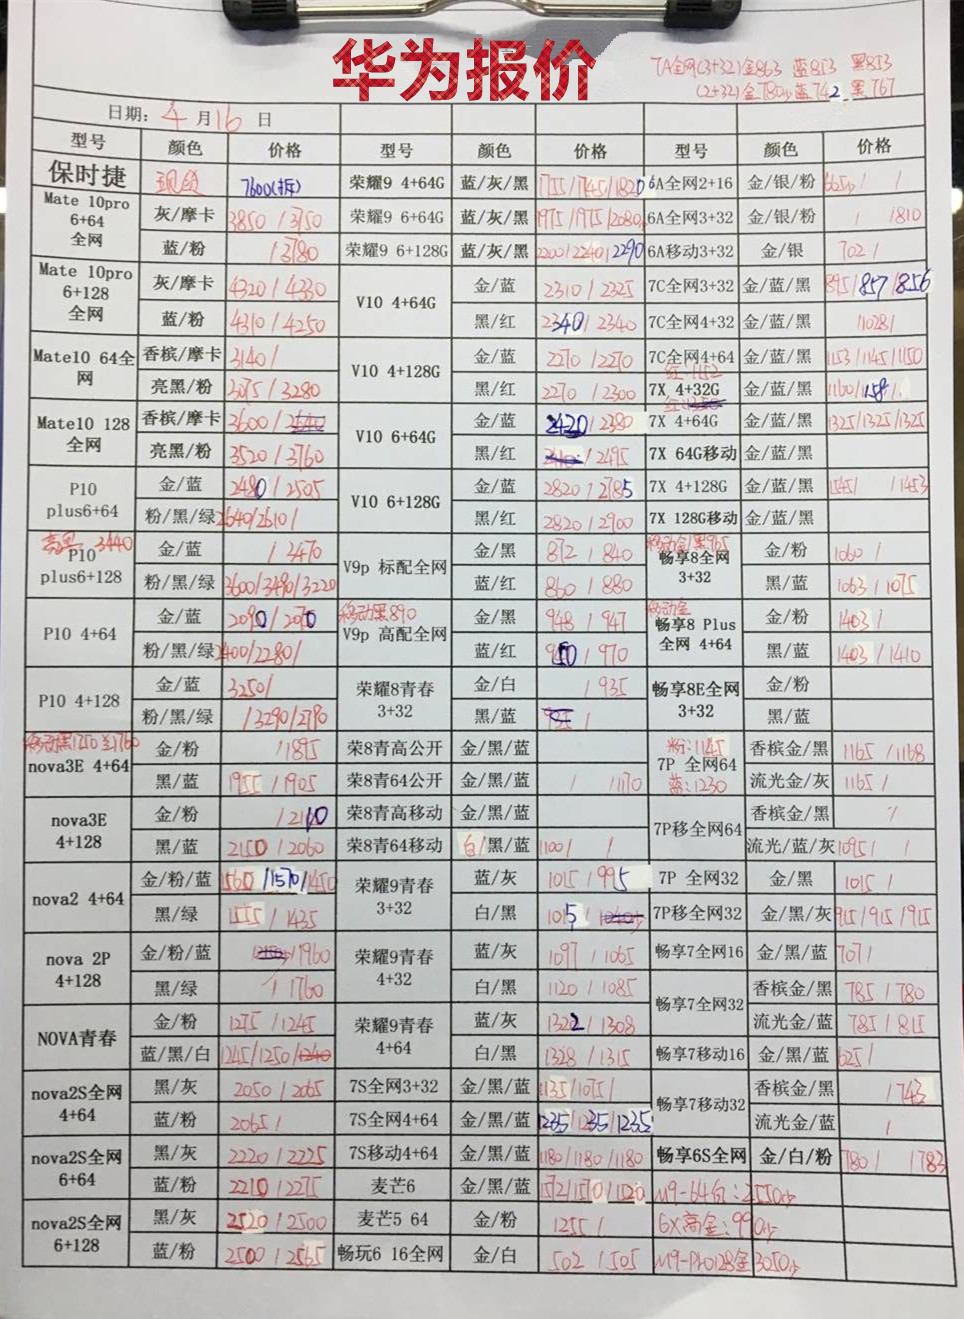 华为报价
7A全网(3+32)金863 蓝853 黑853
(2+32)金780 蓝742 黑767
日期: 4月16日
型号 颜色 价格 型号 颜色 价格 型号 颜色 价格
保时捷 7600(拆) 荣耀9 4+64G 蓝/灰/黑 1755/1745/1820 6A全网2+16 金/银/粉 665 / /
Mate 10pro 6+64 全网 灰/摩卡 3850/3750 荣耀9 6+64G 蓝/灰/黑 1975/1975/2080 6A全网3+32 金/银/粉 / /810
蓝/粉 /3780 荣耀9 6+128G 蓝/灰/黑 2200/2240/2290 6A移动3+32 金/银 702/
Mate 10pro 6+128 全网 灰/摩卡 4320/4330 V10 4+64G 金/蓝 2310/2325 7C全网3+32 金/蓝/黑 895/857/856
蓝/粉 4310/4250 黑/红 2340/2340 7C全网4+32 金/蓝/黑 /1028/
Mate10 64全网 香槟/摩卡 3140/ V10 4+128G 金/蓝 2270/2270 7C全网4+64 金/蓝/黑 1153/1145/1150
红:1152
亮黑/粉 3075/3280 黑/红 2270/2300 7X 4+32G 金/蓝/黑 1160/1158/
Mate10 128全网 香槟/摩卡 3600/ V10 6+64G 金/蓝 2420/2380 7X 4+64G 金/蓝/黑 1325/1325/1325
亮黑/粉 3520/3760 黑/红 /2495 7X 64G移动 金/蓝/黑
P10 plus6+64 金/蓝 2480/2505 V10 6+128G 金/蓝 2820/2785 7X 4+128G 金/蓝/黑 1545/ /1453
粉/黑/绿 2640/2610/ 黑/红 2820/2900 7X 128G移动 金/蓝/黑
亮黑 3440 移动金/黑965
P10 plus6+128 金/蓝 /3470 V9p 标配全网 金/黑 872/840 畅享8全网 3+32 金/粉 1060/
粉/黑/绿 3600/3490/3220 蓝/红 860/880 黑/蓝 1063/1075
移动黑890 移动金
P10 4+64 金/蓝 2090/2070 V9p 高配全网 金/黑 948/947 畅享8 Plus 全网 4+64 金/粉 1403/
粉/黑/绿 2400/2280/ 蓝/红 950/970 黑/蓝 1403/1410
P10 4+128 金/蓝 3250/ 荣耀8青春 3+32 金/白 /935 畅享8E全网 3+32 金/粉
粉/黑/绿 /3290/2790 黑/蓝 / 黑/蓝
移动黑1750 兰1760
nova3E 4+64 金/粉 /1895 荣8青高公开 金/黑/蓝 粉:1145 7P 全网64 蓝:1230 香槟金/黑 1165/1168
黑/蓝 1955/1905 荣8青64公开 金/黑/蓝 / /1170 流光金/灰 1165/
nova3E 4+128 金/粉 /2160 荣8青高移动 金/黑/蓝 7P移全网64 香槟金/黑 /
黑/蓝 2150/2060 荣8青64移动 白/黑/蓝 1100/ / 流光/蓝/灰 1095/ /
nova2 4+64 金/粉/蓝 1560/1570/1450 荣耀9青春 3+32 蓝/灰 1015/995 7P 全网32 金/黑 1015/
黑/绿 1555/1435 白/黑 1015/ 7P移全网32 金/黑/灰 915/915/915
nova 2P 4+128 金/粉/蓝 /1960 荣耀9青春 4+32 蓝/灰 1097/1065 畅享7全网16 金/黑/蓝 707/
黑/绿 /1760 白/黑 1120/1085 畅享7全网32 香槟金/黑 785/780
NOVA青春 金/粉 1275/1245 荣耀9青春 4+64 蓝/灰 1322/1308 流光金/蓝 785/815
蓝/黑/白 1245/1250/1240 白/黑 1328/1315 畅享7移动16 金/黑/蓝 625/
nova2S全网 4+64 黑/灰 2050/2065 7S全网3+32 金/黑/蓝 1135/1075/ 畅享7移动32 香槟金/黑 /743
蓝/粉 2065/ 7S全网4+64 金/黑/蓝 1235/1235/1235 流光金/蓝 /
nova2S全网 6+64 黑/灰 2220/2225 7S移动4+64 金/黑/蓝 1180/1180/1180 畅享6S全网 金/白/粉 780/ /783
蓝/粉 2210/2275 麦芒6 金/黑/蓝 1572/1570/1520 M9-64灰:2550
nova2S全网 6+128 黑/灰 2520/2500 麦芒5 64 金/粉 1255/ 6X高金:990
蓝/粉 2500/2565 畅玩6 16全网 金/白 502/505 M9-Pro128金3050